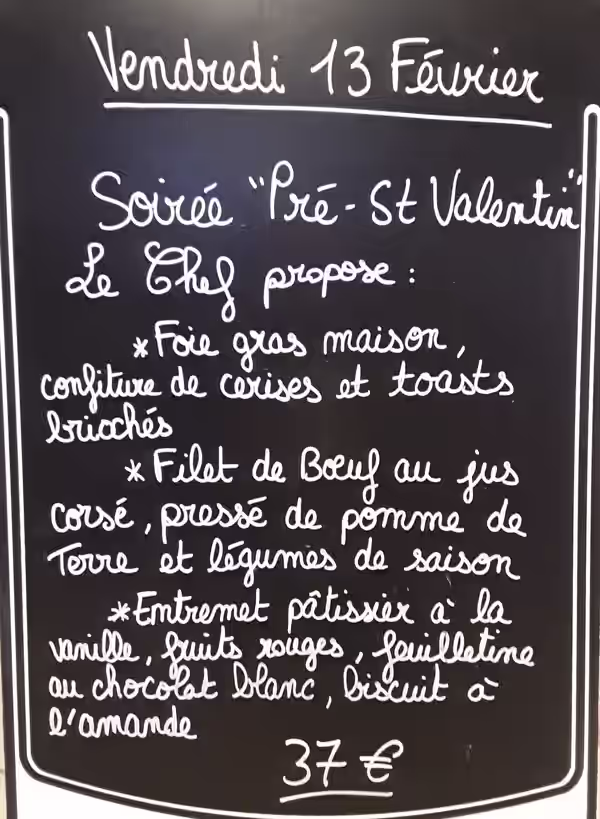 Vendredi 13 Février
Soirée "Pré-St Valentin"
Le Chef propose :
*Foie gras maison,
confiture de cerises et toasts
briochés
*Filet de Bœuf au jus
corsé, pressé de pomme de
Terre et légumes de saison
*Entremet pâtissier à la
vanille, fruits rouges, feuilletine
au chocolat blanc, biscuit à
l'amande
37 €